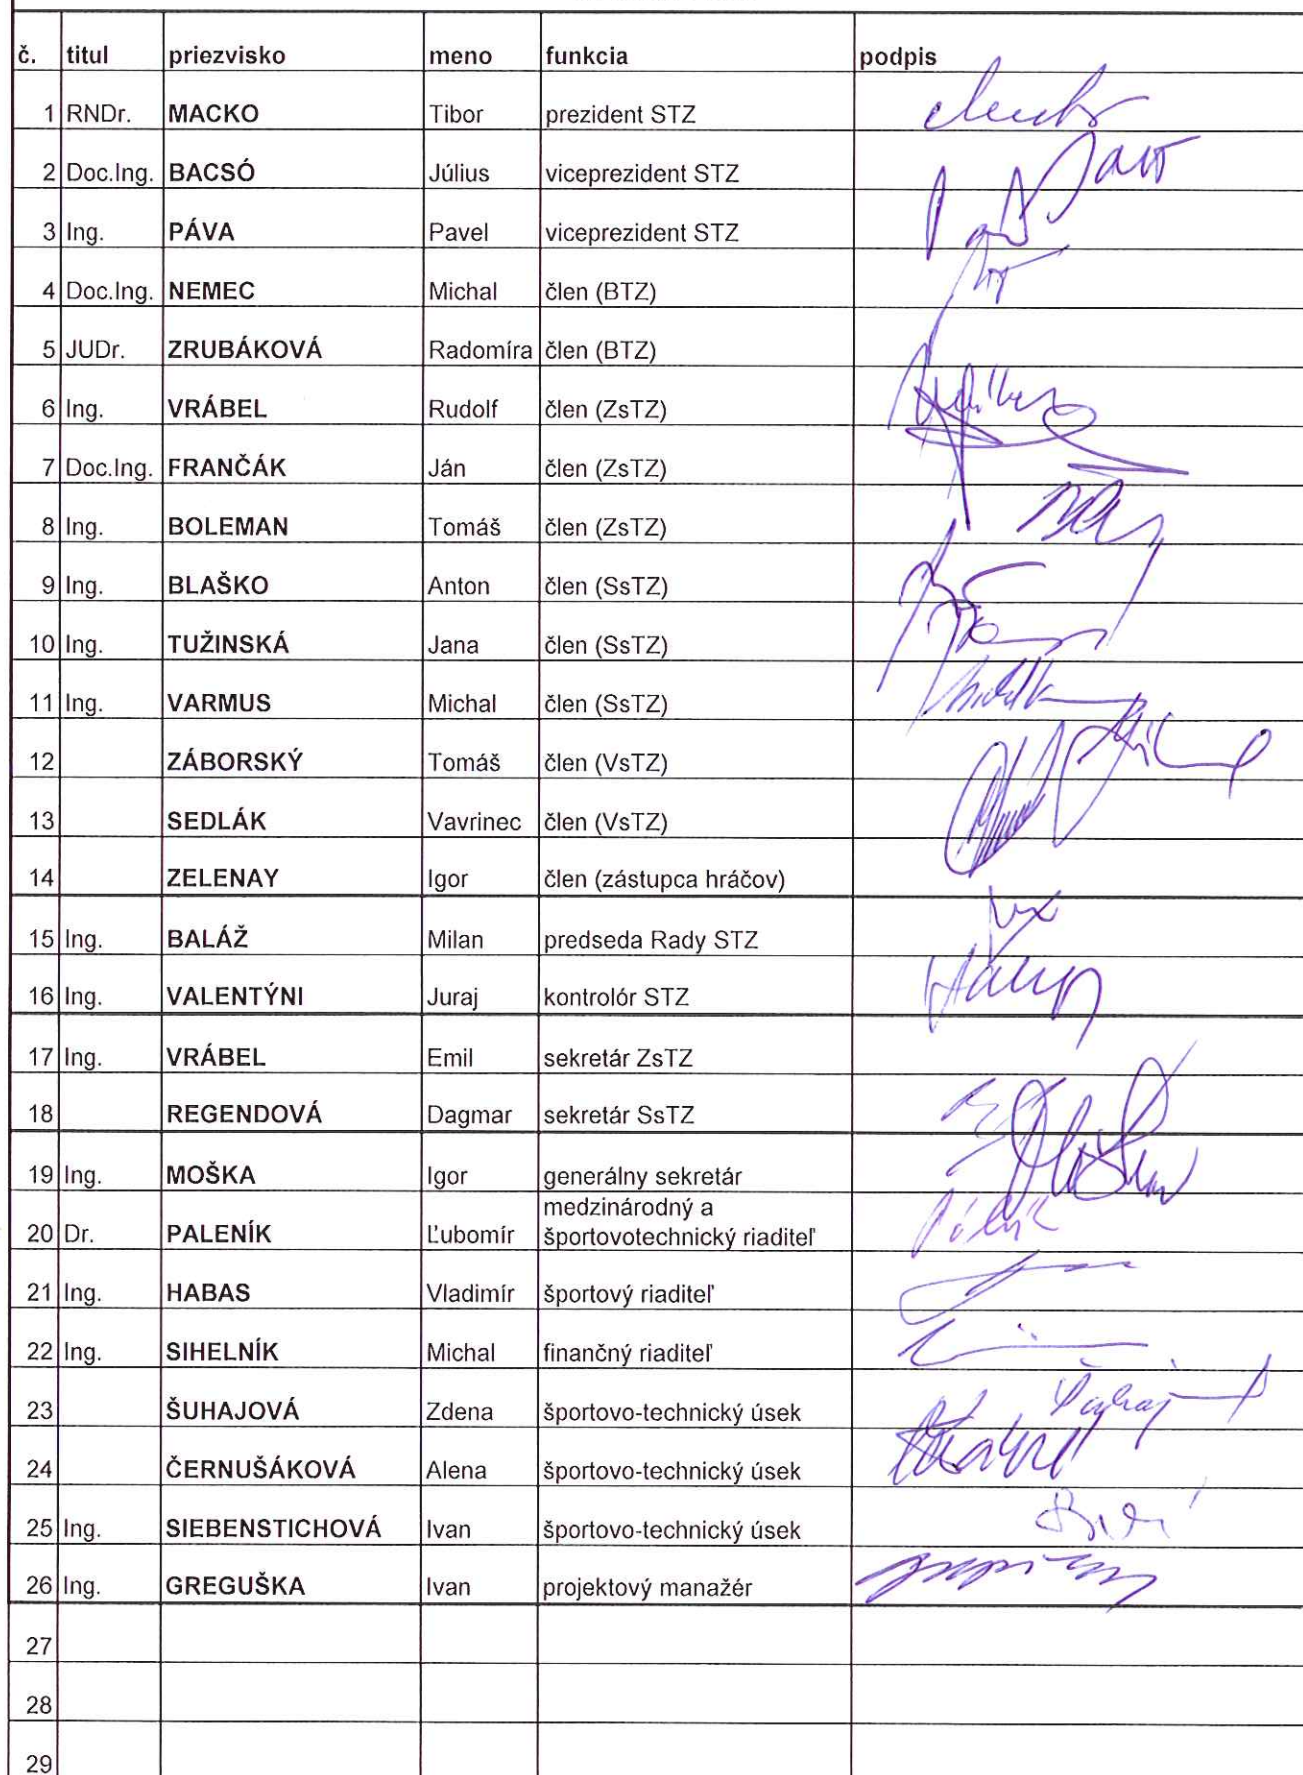 č. titul priezvisko meno funkcia podpis
1 RNDr. MACKO Tibor prezident STZ
2 Doc.Ing. BACSÓ Július viceprezident STZ
3 Ing. PÁVA Pavel viceprezident STZ
4 Doc.Ing. NEMEC Michal člen (BTZ)
5 JUDr. ZRUBÁKOVÁ Radomíra člen (BTZ)
6 Ing. VRÁBEL Rudolf člen (ZsTZ)
7 Doc.Ing. FRANČÁK Ján člen (ZsTZ)
8 Ing. BOLEMAN Tomáš člen (ZsTZ)
9 Ing. BLAŠKO Anton člen (SsTZ)
10 Ing. TUŽINSKÁ Jana člen (SsTZ)
11 Ing. VARMUS Michal člen (SsTZ)
12 ZÁBORSKÝ Tomáš člen (VsTZ)
13 SEDLÁK Vavrinec člen (VsTZ)
14 ZELENAY Igor člen (zástupca hráčov)
15 Ing. BALÁŽ Milan predseda Rady STZ
16 Ing. VALENTÝNI Juraj kontrolór STZ
17 Ing. VRÁBEL Emil sekretár ZsTZ
18 REGENDOVÁ Dagmar sekretár SsTZ
19 Ing. MOŠKA Igor generálny sekretár
medzinárodný a
20 Dr. PALENÍK Ľubomír športovotechnický riaditeľ
21 Ing. HABAS Vladimír športový riaditeľ
22 Ing. SIHELNÍK Michal finančný riaditeľ
23 ŠUHAJOVÁ Zdena športovo-technický úsek
24 ČERNUŠÁKOVÁ Alena športovo-technický úsek
25 Ing. SIEBENSTICHOVÁ Ivan športovo-technický úsek
26 Ing. GREGUŠKA Ivan projektový manažér
27
28
29